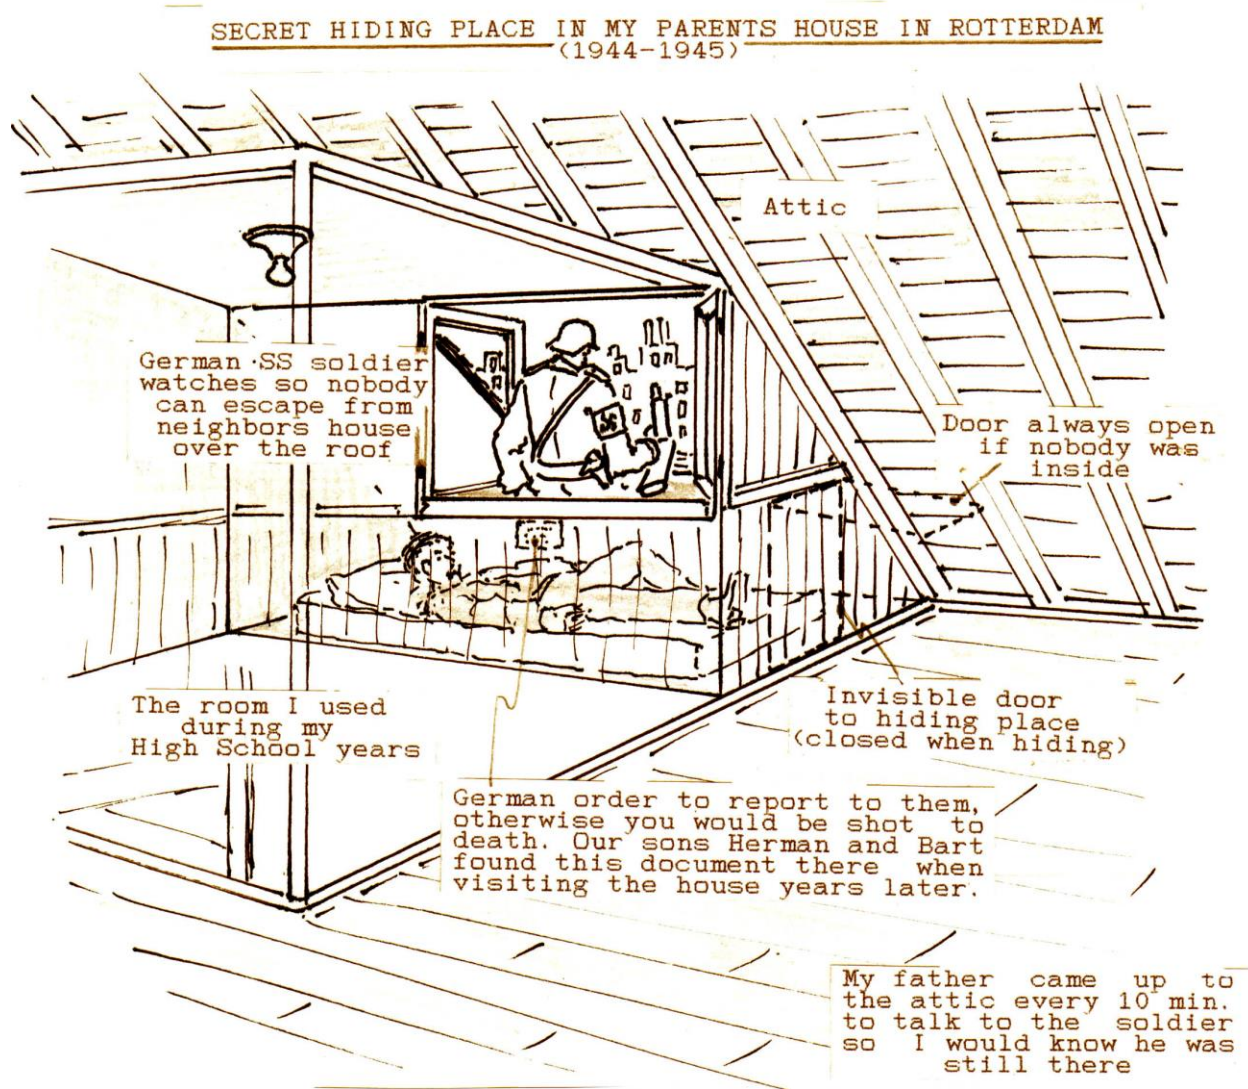 SECRET HIDING PLACE IN MY PARENTS HOUSE IN ROTTERDAM
(1944-1945)
Attic
German SS soldier
watches so nobody
can escape from
neighbors house
over the roof
Door always open
if nobody was
inside
The room I used
during my
High School years
Invisible door
to hiding place
(closed when hiding)
German order to report to them,
otherwise you would be shot to
death. Our sons Herman and Bart
found this document there when
visiting the house years later.
My father came up to
the attic every 10 min.
to talk to the soldier
so I would know he was
still there